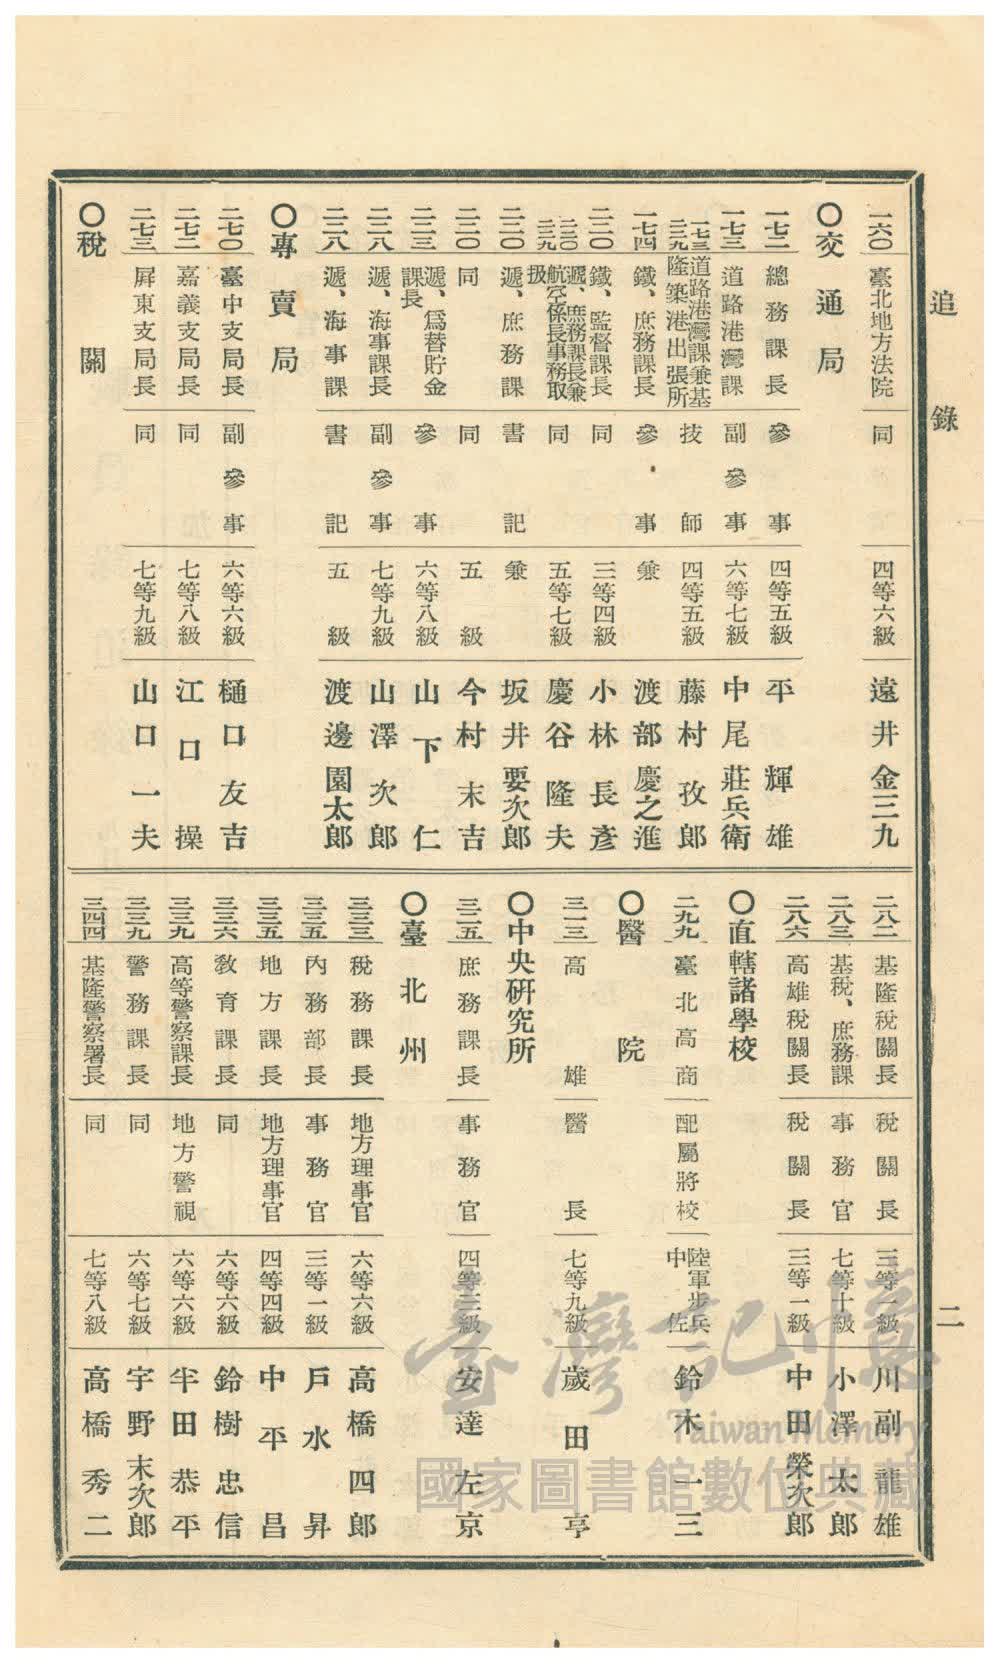 追錄
二
一六〇 臺北地方法院 同 四等六級 遠井金三九
〇交通局
一七二 總務課長 參事 四等五級 平輝雄
一七三 道路港灣課 副參事 六等七級 中尾莊兵衛
一七三 道路港灣課兼基
二二九 隆築港出張所 技師 四等五級 藤村孜郎
一七四 鐵、庶務課長 參事 兼 渡部慶之進
二二〇 鐵、監督課長 同 三等四級 小林長彥
二二〇 遞、庶務課長兼
二二九 航空係長事務取
扱 同 五等七級 慶谷隆夫
二二〇 遞、庶務課 書記 兼 坂井要次郎
二二〇 同 同 五級 今村末吉
二二三 遞、爲替貯金
課長 參事 六等八級 山下仁
二二八 遞、海事課長 副參事 七等九級 山澤次郎
二二八 遞、海事課 書記 五級 渡邊園太郎
〇專賣局
二七〇 臺中支局長 副參事 六等六級 樋口友吉
二七二 嘉義支局長 同 七等八級 江口操
二七三 屏東支局長 同 七等九級 山口一夫
〇稅關
二八二 基隆稅關長 稅關長 三等一級 川副龍雄
二八三 基稅、庶務課 事務官 七等十級 小澤太郎
二八六 高雄稅關長 稅關長 三等一級 中田榮次郎
〇直轄諸學校
二九九 臺北高商 配屬將校 陸軍步兵
中佐 鈴木一三
〇醫院
三一三 高雄 醫長 七等九級 歲田亭
〇中央硏究所
三二五 庶務課長 事務官 四等三級 安達左京
〇臺北州
三三三 稅務課長 地方理事官 六等六級 高橋四郎
三三五 內務部長 事務官 三等一級 戶水昇
三三五 地方課長 地方理事官 四等四級 中平昌
三三六 敎育課長 同 六等六級 鈴樹忠信
三三九 高等警察課長 地方警視 六等六級 半田恭平
三三九 警務課長 同 六等七級 宇野末次郎
三四四 基隆警察署長 同 七等八級 高橋秀二
臺灣記憶
Taiwan Memory
國家圖書館數位典藏